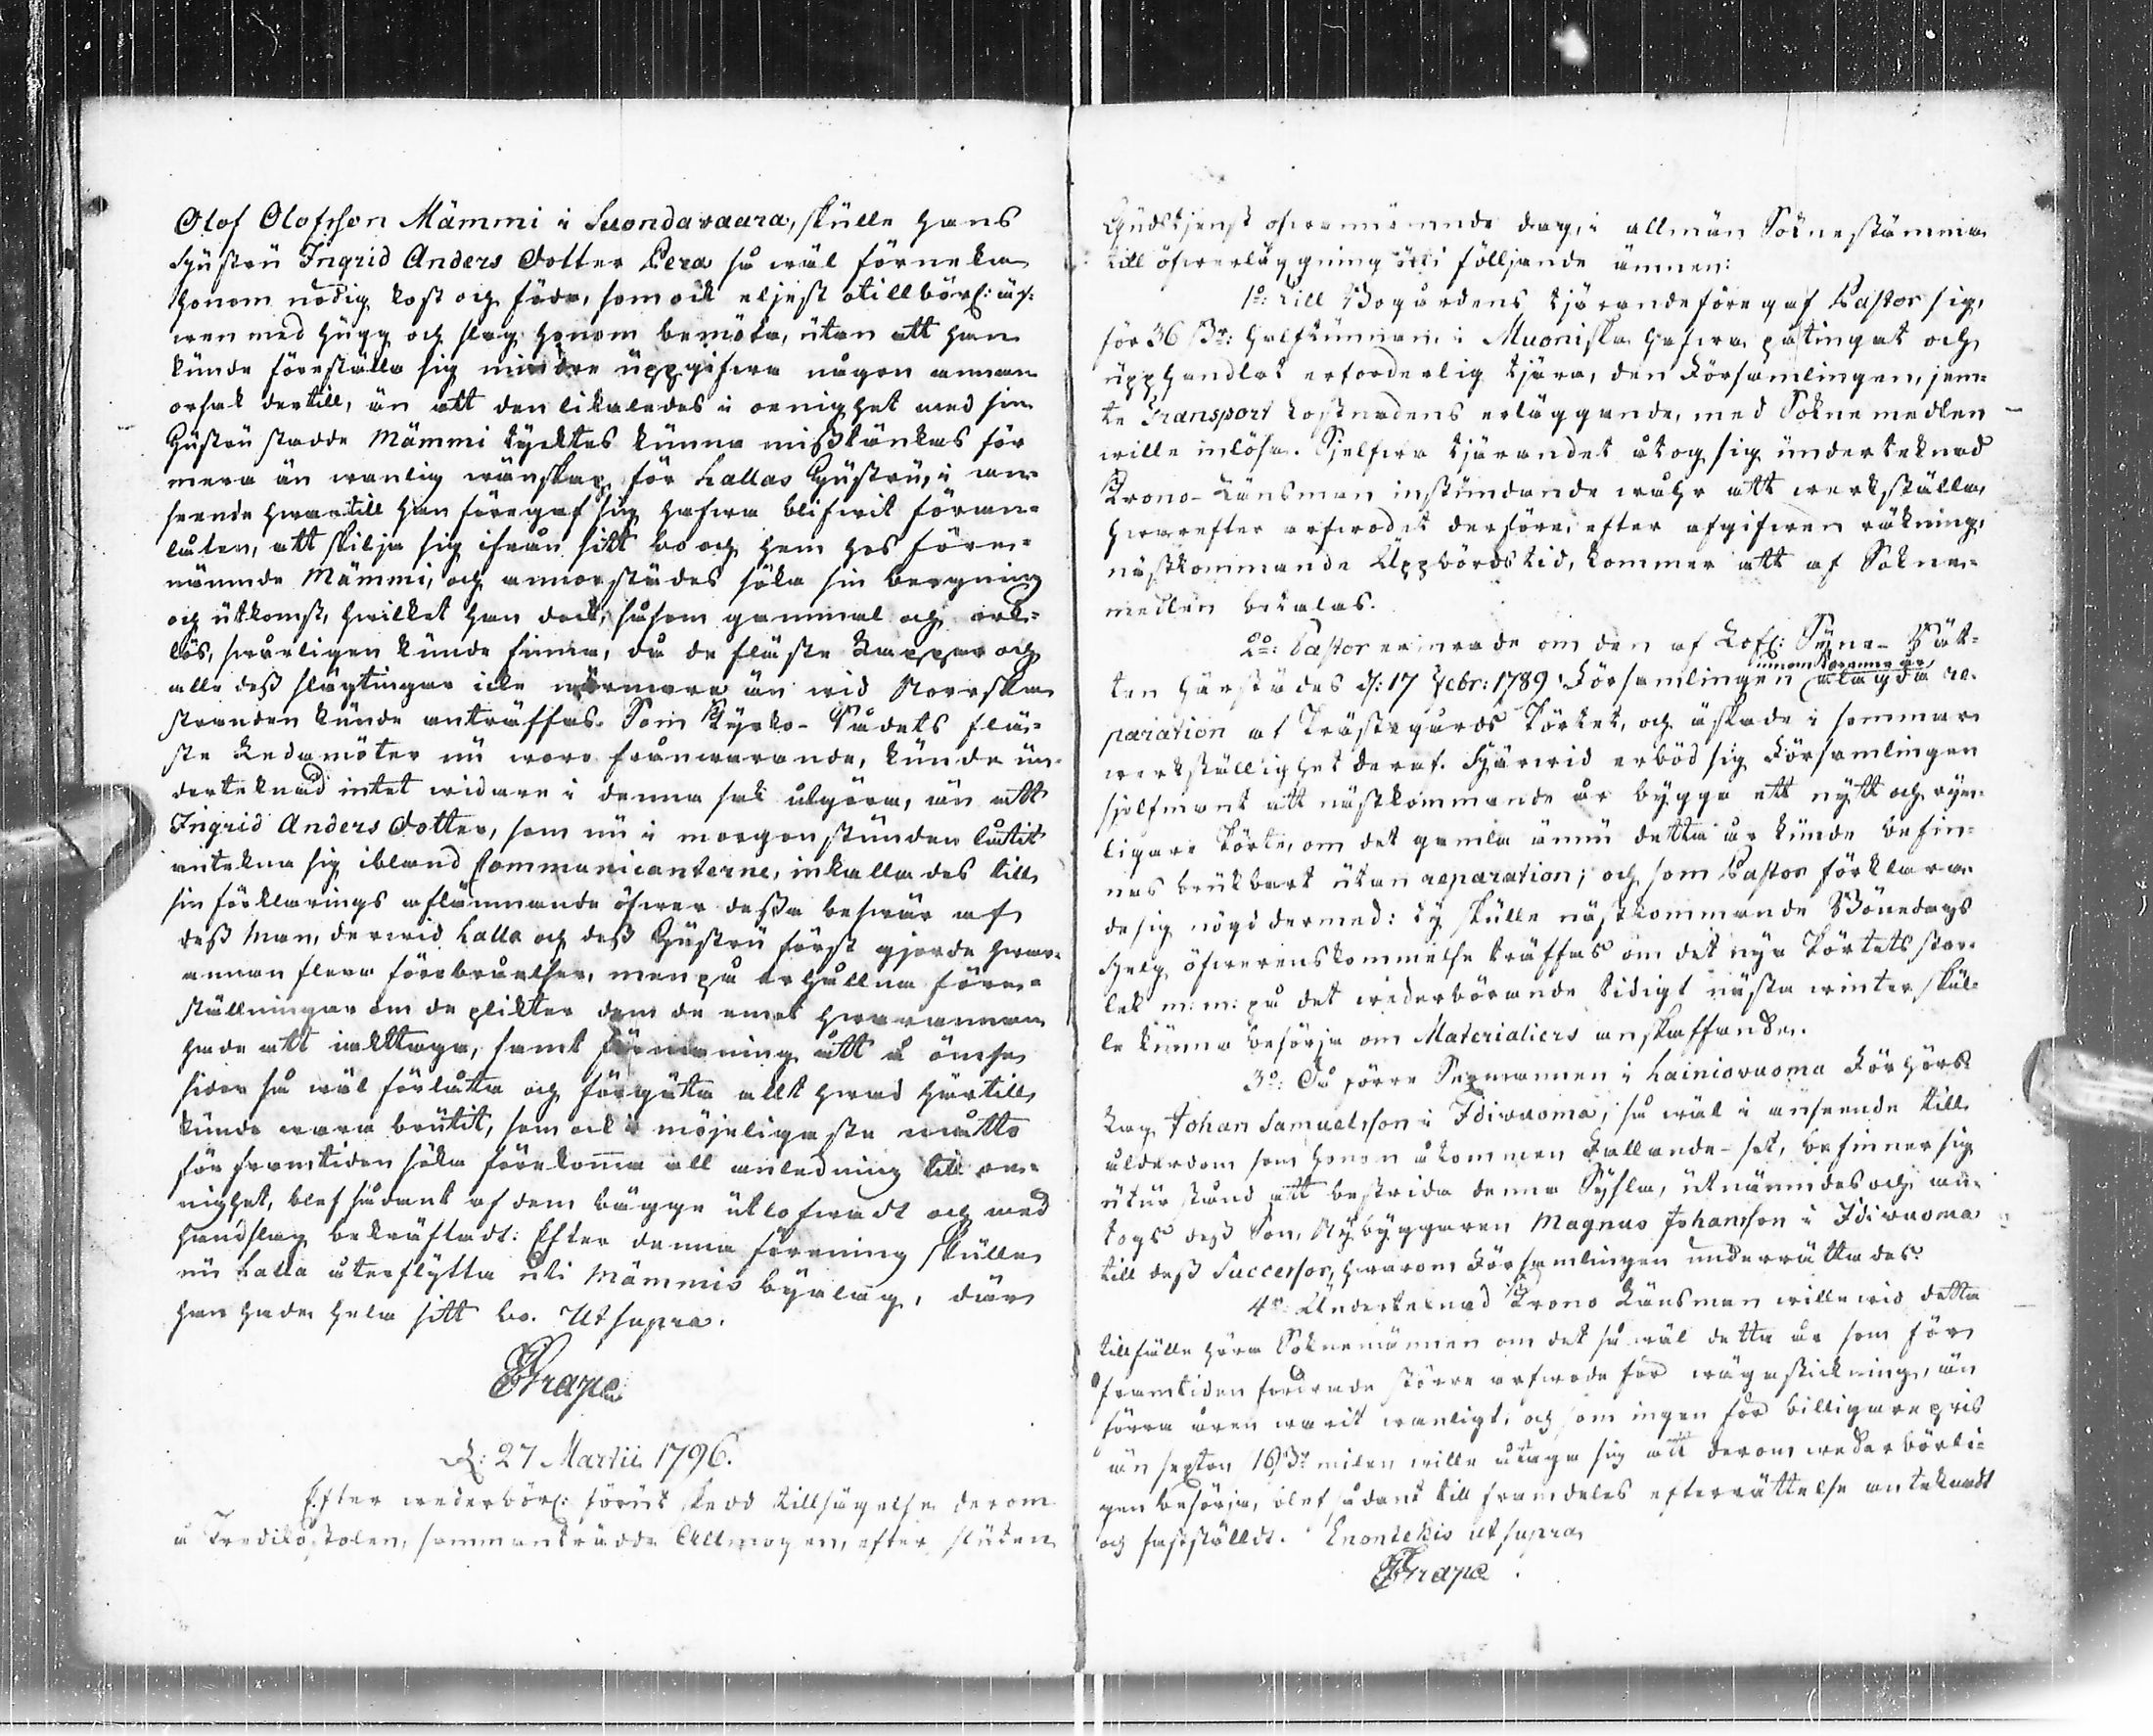 Olof Olofsson Mämmi i Suondavaara, skulle hans
Hustru Ingrid Anders Dotter Pera så wäl förneka
honom nödig kost och föda, som ock eljest otillbörl: äf-
wen med hugg och slag honom bemöta, utan att han
kunde föreställa sig mindre uppgifwa någon annan
orsak dertill, än att den likaledes i oenighet med sin
Hustru stadde Mämmi tycktes kunna misstänkas för
mera än wanlig wänskap för Lallas Hustru, i an-
seende hwartill han föregaf sig hafwa blifwit föran-
låten, att skilja sig ifrån sitt bo och hem hos förr-
nämnde Mämmi, och annorstädes söka sin bergning
och utkomst, hwilket han dock, såsom gammal och ork-
lös, swårligen kunde finna, då de fläste Lappar och
alle dess slägtingar icke närmare än wid Norrska
stranden kunde anträffas. Som Kyrko-Rådets flä-
ste Ledamöter nu woro frånwarande, kunde un-
derteknad intet widare i denna sak utgöra, än att
Ingrid Anders Dotter, som nu i morgonstunden låtit
antekna sig ibland Communicanterne, inkallades till
sin förklarings aflämnande öfwer dessa beswär af
dess Man, derwid Lalla och dess Hustru först gjorde hwar-
annan flera förebråelser, men på erhållna före-
ställningar om de plikter dem de emot hwarannan
hade att iakttaga, samt förmaning att å ömse
sidor så wäl förlåta och förgäta allt hwad härtill
kunde wara brutit, som ock i möjeligaste måtto
för framtiden söka förekoma all anledning till oe-
nighet, blef sådant af dem bägge utlofwadt och med
handslag bekräftadt. Efter denna förening skulle
nu Lalla återflytta uti Mämmis byalag, där
han hade hela sitt bo. Ut supra.
D: 27 Martii 1796.
Efter wederbörl: förut skedd tillsägelse derom
å Predikostolen, sammanträdde Allmogen, efter slutan
Gudstjenst ofwannämnde dag, i allmän Soknestämma
till öfwerläggning uti följande ämnen:
1o: Till Bogårdens tjärande föregaf Pastor sig,
för 36 halftunnan i Muoniska hafwa patingat och
upphandlat erforderlig tjära, den Församlingen, jem-
te Transport kostnadens erläggande, med Soknemedlen
wille inlösa. Sjelfwa tjärandet åtog sig underteknad
Krono-Länsman instundande wåhr att werkställa,
hwarefter arfwodet derföre, efter afgifwen räkning,
nästkommande Uppbördstid, kommer att af Sokne-
medlen betalas.
2o: Pastor erinrade om den af Lofl: Syne-Rät-
innom
ten härstädes d: 17 Febr: 1789 Församlingen ålagda re-
paration af Prästegårds Pörtet, och äskade i sommar
werkställighet deraf. Härwid erböd sig Församlingen
sjelfmant att nästkommande år bygga ett nytt och rym-
ligare Pörte, om det gamla ännu detta år kunde befin-
nas brukbart utan reparation; och som Pastor förklara-
de sig nögd dermed: ty skulle nästkommande Bönedags
Helg öfwerenskommelse träffas om det nya Pörtets stor-
lek m: m: på det wederbörande tidigt nästa winter skul-
le kunna besörja om Materialiers anskaffande.
3o: Då förre Sexmannen i Lainiovuoma Förhörs-
Lag Johan Samuelsson i Idivuoma, så wäl i anseende till
ålderdom som honom åkommen Fallande-sot, befinner sig
utur stånd att bestrida denna Sysla, utnämndes och an-
togs dess Son, Nybyggaren Magnus Johansson i Idivuoma
till dess Successor, hwarom Församlingen underrättades.
4o: Underteknad Krono Länsman wille wid detta
tillfälle höra Soknemännen om det så wäl detta år som för
framtiden fordrade större arfwode för wägastickning, än
förra åren warit wanligt, och som ingen för billigare pris
än sexton 16 milen wille åtaga sig att derom wederbörli-
gen besörja, blef sådant till framdeles efterrättelse anteknadt
och fastställdt. Enontekis ut supra